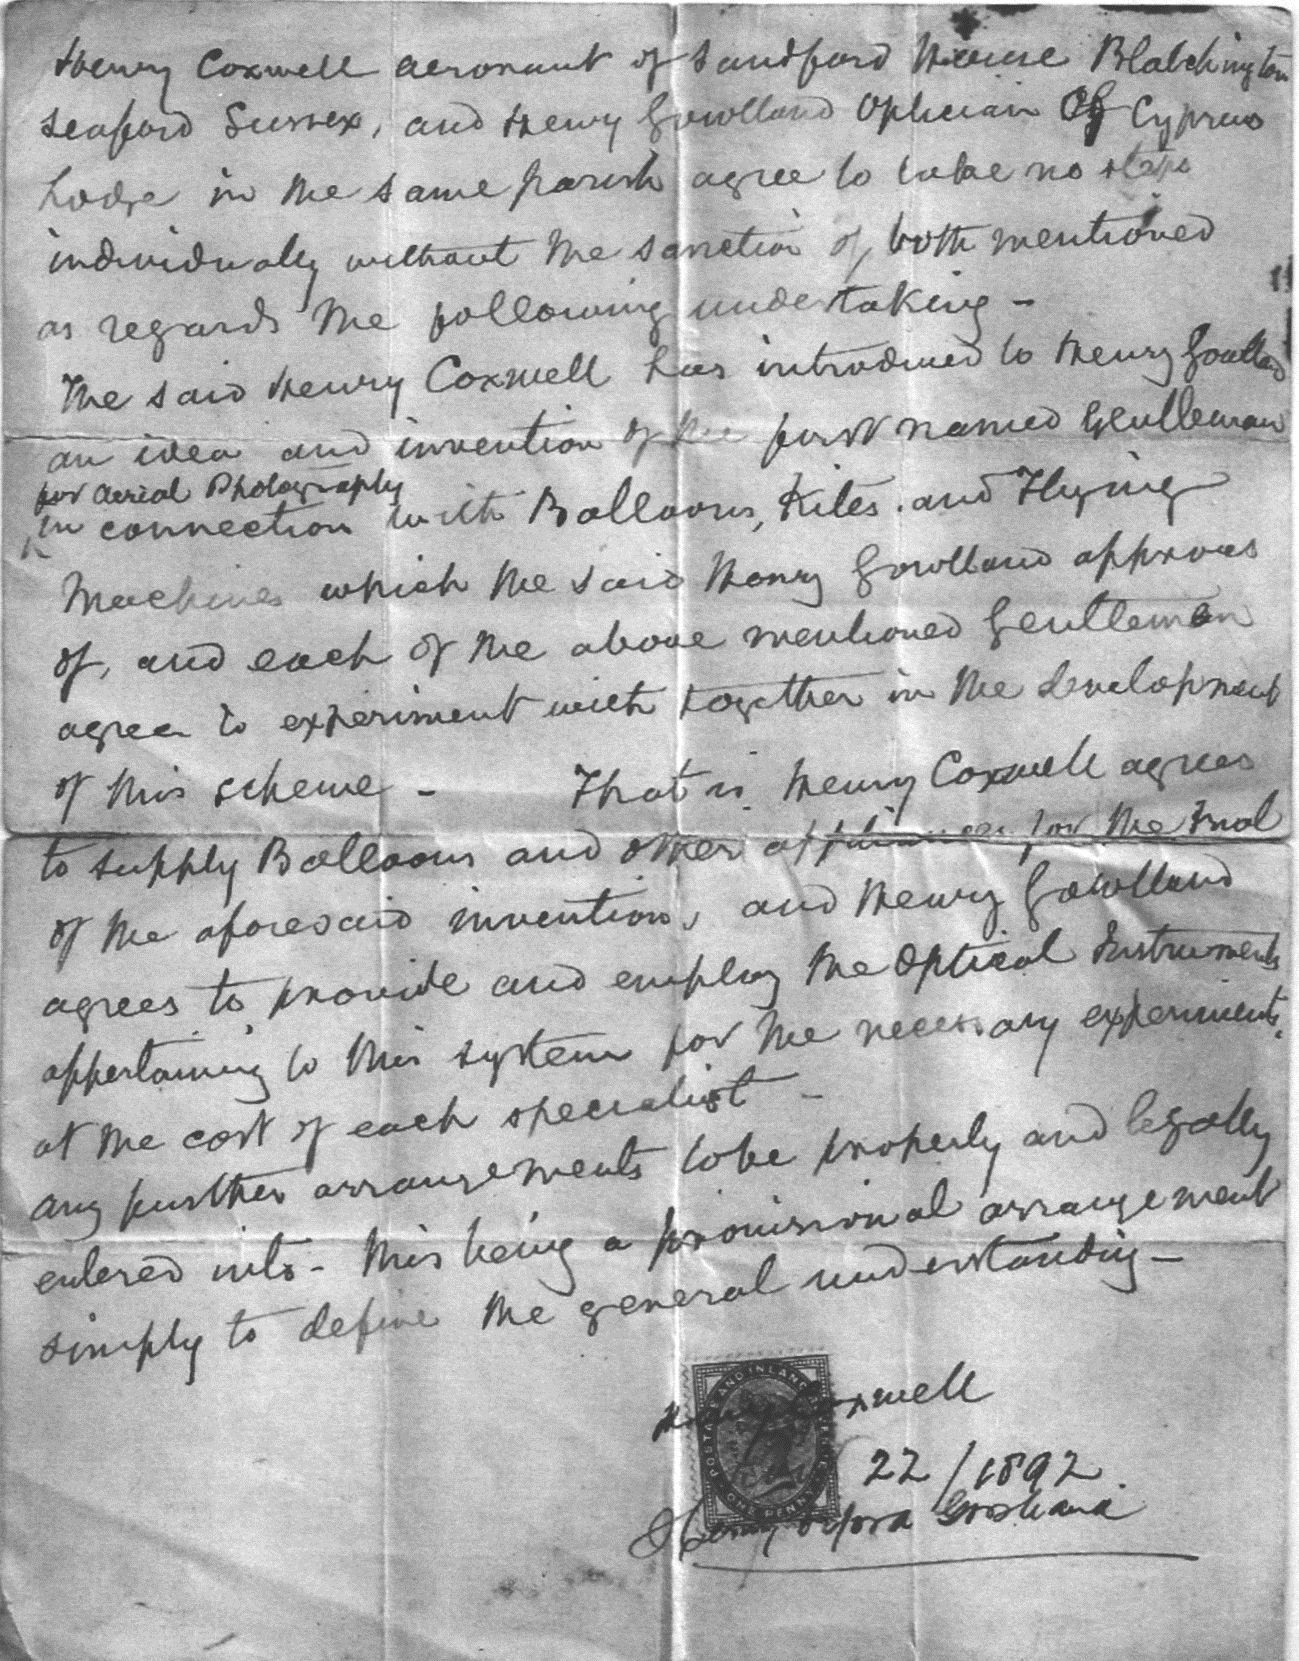 Henry Coxwell aeronaut of Sandford House Blatchington
Seaford Sussex, and Henry Gowlland Optician Of Cyprus
Lodge in the same parish agree to take no steps
individually without the sanction of both mentioned
as regards the following undertaking -
The said Henry Coxwell has introduced to Henry Gowlland
an idea and invention of the first named Gentleman
for Aerial Photography
in connection with Balloons, Kites. and Flying
Machines which the said Henry Gowlland approves
of, and each of the above mentioned Gentlemen
agree to experiment with together in the development
of this scheme - That is Henry Coxwell agrees
to supply Balloons and other appliances for the trial
of the aforesaid invention, and Henry Gowlland
agrees to provide and employ the Optical Instruments
appertaining to this system for the necessary experiments,
at the cost of each specialist -
any further arrangements to be properly and legally
entered into - this being a provisional arrangement
simply to define the general understanding -
Henry Coxwell
22/1892
Henry
POSTAGE AND INLAND REVENUE
ONE PENNY